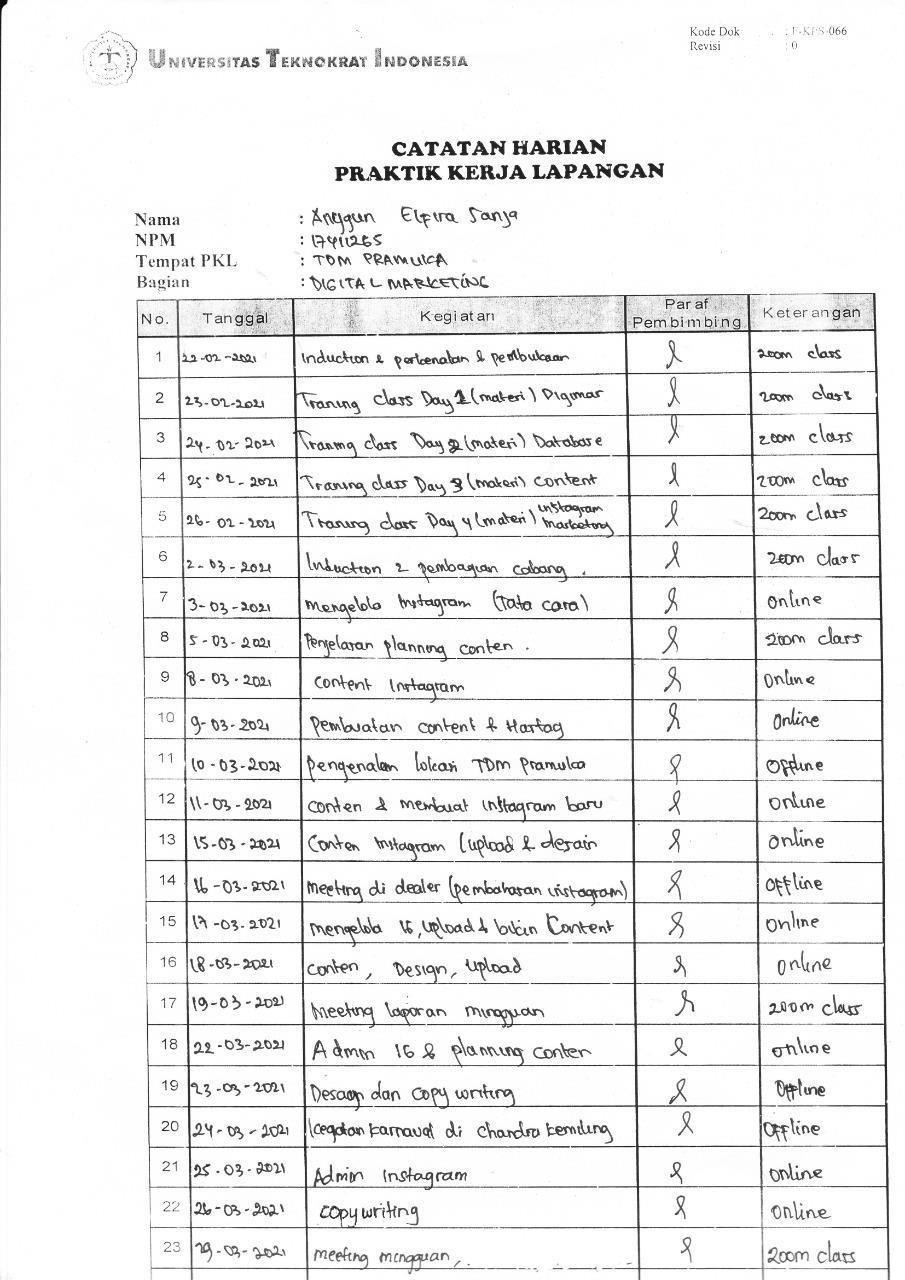 Kode Dok : F-KPS-066
Revisi : 0
UNIVERSITAS TEKNOKRAT INDONESIA
CATATAN HARIAN
PRAKTIK KERJA LAPANGAN
Nama : Anggun Elfira Sanja
NPM : 17411265
Tempat PKL : TDM PRAMUKA
Bagian : DIGITAL MARKETING
No. Tanggal Kegiatan Paraf Pembimbing Keterangan
1 22-02-2021 Induction & perkenalan & pembukaan zoom class
2 23-02-2021 Traning class Day 1 (materi) Digimar zoom class
3 24-02-2021 Traning class Day 2 (materi) Database zoom class
4 25-02-2021 Traning class Day 3 (materi) content zoom class
5 26-02-2021 Traning class Day 4 (materi) instagram marketing zoom class
6 2-03-2021 Induction 2 pembagian cabang. zoom class
7 3-03-2021 mengelola Instagram (Tata cara) online
8 5-03-2021 Penjelasan planning conten. zoom class
9 8-03-2021 content Instagram online
10 9-03-2021 pembuatan content & Hastag online
11 10-03-2021 pengenalan lokasi TDM Pramuka Offline
12 11-03-2021 conten & membuat instagram baru online
13 15-03-2021 Conten Instagram (upload & desain online
14 16-03-2021 meeting di dealer (pembahasan instagram) offline
15 17-03-2021 mengelola IG, upload & bikin Content online
16 18-03-2021 conten, Design, upload online
17 19-03-2021 Meeting laporan mingguan zoom class
18 22-03-2021 Admin IG & planning conten online
19 23-03-2021 Desaign dan copy writing Offline
20 24-03-2021 kegiatan karnaval di chandra kemiling Offline
21 25-03-2021 Admin instagram online
22 26-03-2021 copywriting online
23 29-03-2021 meeting mingguan, zoom class